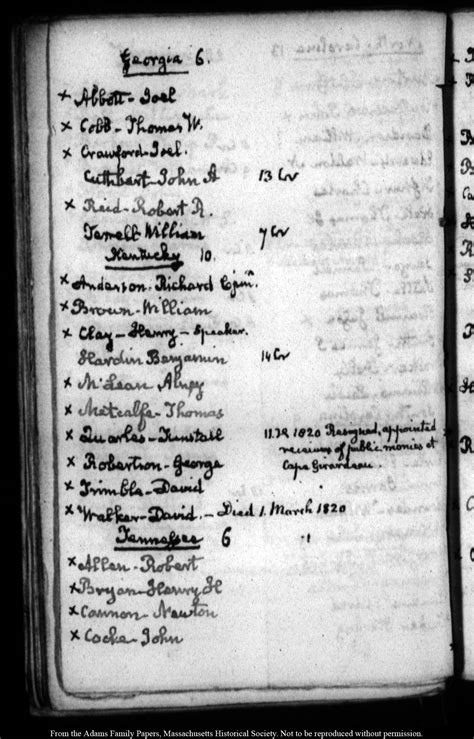 Georgia 6.
x Abbott - Joel
x Cobb - Thomas W.
x Crawford - Joel.
Cuthbert - John A 13 Cr
x Reid - Robert R.
Terrell William 7 Cr
Kentucky 10.
x Anderson - Richard C junr.
x Brown - William
x Clay - Henry - Speaker.
Hardin Benjamin 14 Cr
x McLean Alney
x Metcalfe - Thomas
x Quarles - Tunstall 1820 Resigned, appointed
receiver of public monies at
x Robertson - George Cape Girardeau.
x Trimble - David
x Walker - David. - Died 1. March 1820
Tennessee 6
x Allen - Robert
x Bryan - Henry H
x Cannon - Newton
x Cocke - John
From the Adams Family Papers, Massachusetts Historical Society. Not to be reproduced without permission.